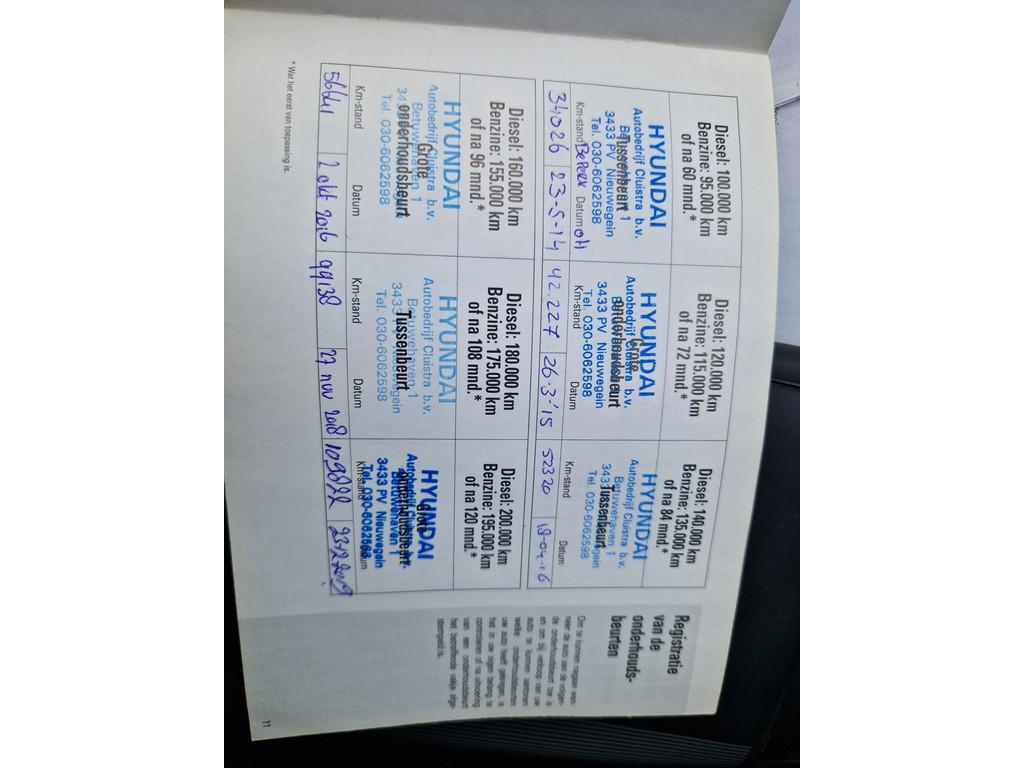 Diesel: 100.000 km
Benzine: 95.000 km
of na 60 mnd.*
HYUNDAI
Autobedrijf Cluistra b.v.
Tussenbeurt
Betuwehaven 1
3433 PV Nieuwegein
Tel. 030-6062598
Km-stand Datum
34026 23-5-14
Diesel: 120.000 km
Benzine: 115.000 km
of na 72 mnd.*
HYUNDAI
Grote
Autobedrijf Cluistra b.v.
onderhoudsbeurt
3433 PV Nieuwegein
Tel. 030-6062598
Km-stand Datum
42.227 26-3-'15
Diesel: 140.000 km
Benzine: 135.000 km
of na 84 mnd.*
HYUNDAI
Autobedrijf Cluistra b.v.
Betuwehaven 1
Tussenbeurt
Tel. 030-6062598
Km-stand Datum
52320 18-04-16
Diesel: 160.000 km
Benzine: 155.000 km
of na 96 mnd.*
HYUNDAI
Autobedrijf Cluistra b.v.
Grote
Betuwehaven 1
onderhoudsbeurt
Tel. 030-6062598
Km-stand Datum
56641 2 okt 2016
Diesel: 180.000 km
Benzine: 175.000 km
of na 108 mnd.*
HYUNDAI
Autobedrijf Cluistra b.v.
Betuwehaven 1
Tussenbeurt
Tel. 030-6062598
Km-stand Datum
99138 27 nov 2018
Diesel: 200.000 km
Benzine: 195.000 km
of na 120 mnd.*
HYUNDAI
Grote
Autobedrijf Cluistra b.v.
onderhoudsbeurt
Betuwehaven 1
3433 PV Nieuwegein
Tel. 030-6062598
Km-stand Datum
23.12.2019
* Wat het eerst van toepassing is.
Registratie
van de
onderhouds-
beurten
Om te kunnen nagaan wan-
neer de auto aan de volgen-
de onderhoudsbeurt toe is
en om bij verkoop van uw
auto te kunnen aantonen
welke onderhoudsbeurten
uw auto heeft gekregen, is
het in uw eigen belang te
controleren of na uitvoering
van een onderhoudsbeurt
het betreffende vakje afge-
stempeld is.
11